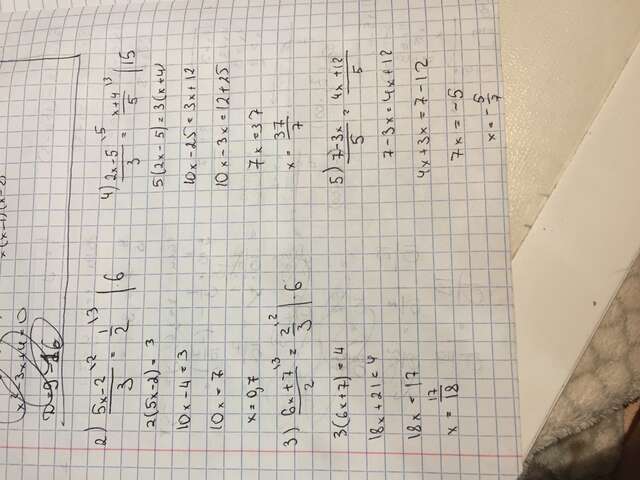 x(x-1)(x-2)
x²-3x+4=0
D=9-16
2) (5x-2)/3 \2 = 1/2 \3 |·6
2(5x-2)=3
10x-4=3
10x=7
x=0,7
3) (6x+7)/2 \3 = 2/3 \2 |·6
3(6x+7)=4
18x+21=4
18x=17
x=17/18
4) (2x-5)/3 \5 = (x+4)/5 \3 |15
5(2x-5)=3(x+4)
10x-25=3x+12
10x-3x=12+25
7x=37
x=37/7
5) (7-3x)/5 = (4x+12)/5
7-3x=4x+12
4x+3x=7-12
7x=-5
x=-5/7